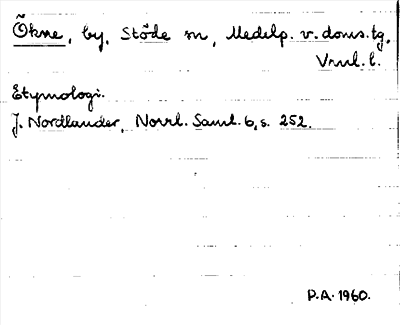 Ökne, by, Stöde sn, Medelp. v. doms.tg,
Vrnl. l.
Etymologi.
J. Nordlander, Norrl. Saml. 6, s. 252.
P.A. 1960.